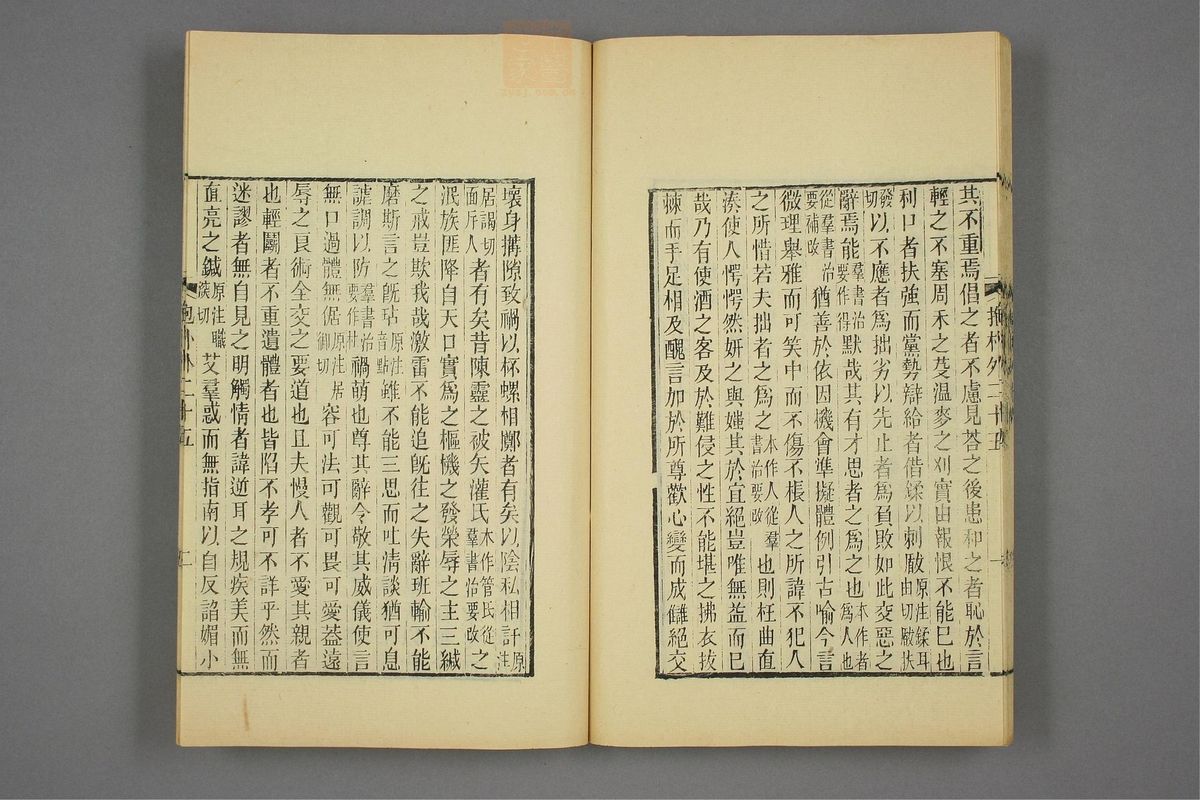 其不重焉倡之者不慮見荅之後患和之者恥於言
輕之不塞周禾之芟溫麥之刈實由報恨不能已也
利口者扶強而黨勢辯給者借鍒以刺瞂原注鍒耳由切瞂扶
發切以不應者爲拙劣以先止者爲負敗如此交惡之
辭焉能羣書治要作得默哉其有才思者之爲之也本作者爲人也
從羣書治要補改猶善於依因機會準擬體例引古喻今言
微理舉雅而可笑中而不傷不棖人之所諱不犯人
之所惜若夫拙者之爲之本作人從羣書治要改也則枉曲直
湊使人愕愕然妍之與媸其於宜絕豈唯無益而已
哉乃有使酒之客及於難侵之性不能堪之拂衣拔
棘而手足相及醜言加於所尊歡心變而成讎絕交
壞身搆隙致禍以杯螺相擲者有矣以陰私相訐原注
居謁切面斥人者有矣昔陳靈之被矢灌氏本作管氏從羣書治要改之
泯族匪降自天口實爲之樞機之發榮辱之主三緘
之戒豈欺我哉激雷不能追旣往之失辭班輸不能
磨斯言之旣玷原注音點雖不能三思而吐清談猶可息
謔調以防羣書治要作杜禍萌也尊其辭令敬其威儀使言
無口過體無倨原注居御切容可法可觀可畏可愛蓋遠
辱之良術全交之要道也且夫慢人者不愛其親者
也輕鬭者不重遺體者也皆陷不孝可不詳乎然而
迷謬者無自見之明觸情者諱逆耳之規疾美而無
直亮之鍼原注職簇切艾羣惑而無指南以自反諂媚小
抱朴外二十五
抱朴外二十五